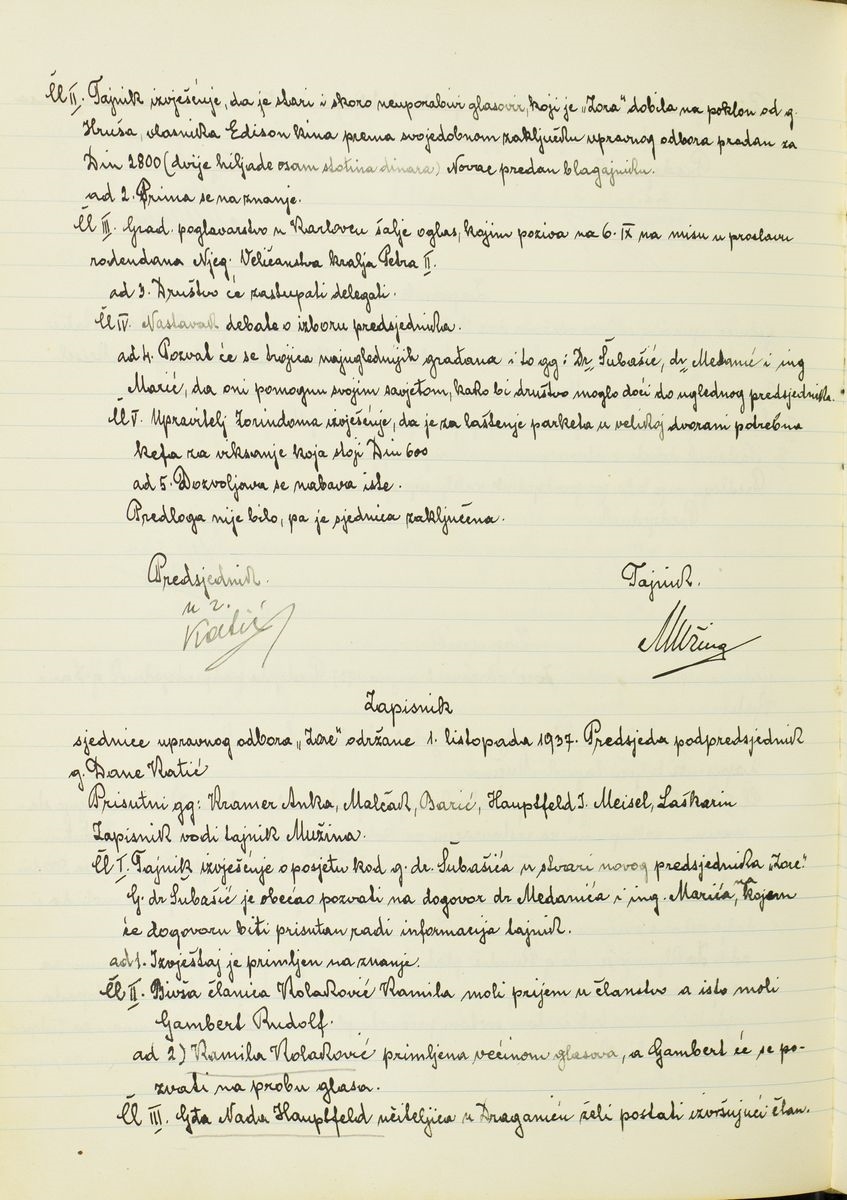 Čl II. Tajnik izvješćuje, da je stari i skoro neuporabivi glasovir, koji je „Zora" dobila na poklon od g.
Hruša, vlasnika Edison kina prema svojedobnom zaključku upravnog odbora prodan za
Din 2800 (dvije hiljade osam stotina dinara) Novac predan blagajniku.
ad 2. Prima se na znanje.
Čl III. Grad. poglavarstvo u Karlovcu šalje oglas, kojim poziva na 6. IX na misu u proslavu
rođendana Njeg. Veličanstva kralja Petra II.
ad 3. Društvo će zastupati delegati.
Čl IV. Nastavak debate o izboru predsjednika.
ad 4. Pozvat će se trojica najuglednijih građana i to gg: Dr Šubašić, dr Medanić i ing
Marić, da oni pomognu svojim savjetom, kako bi društvo moglo doći do uglednog predsjednika.
Čl V. Upravitelj Zorindoma izvješćuje, da je za laštenje parketa u velikoj dvorani potrebna
kefa za viksanje koja stoji Din 600
ad 5. Dozvoljava se nabava iste.
Predloga nije bilo, pa je sjednica zaključena.
Predsjednik. Tajnik.
u z.
Katić
Zapisnik
sjednice upravnog odbora „Zore" održane 1. listopada 1937. Predsjeda podpredsjednik
g. Dane Katić
Prisutni gg: Kramer Anka, Malčak, Barić, Hauptfeld I. Meisel, Laškarin
Zapisnik vodi tajnik Mužina.
Čl I. Tajnik izvješćuje o posjetu kod g. dr. Šubašića u stvari novog predsjednika „Zore".
G. dr Šubašić je obećao pozvati na dogovor dr Medanića i ing. Marića, na kojem
će dogovoru biti prisutan radi informacija tajnik.
ad 1. Izvještaj je primljen na znanje.
Čl II. Bivša članica Kolaković Kamila moli prijem u članstvo a isto moli
Gambert Rudolf.
ad 2) Kamila Kolaković primljena većinom glasova, a Gambert će se po-
zvati na probu glasa.
Čl III. Gđa Nada Hauptfeld učiteljica u Draganiću želi postati izvršujući član.